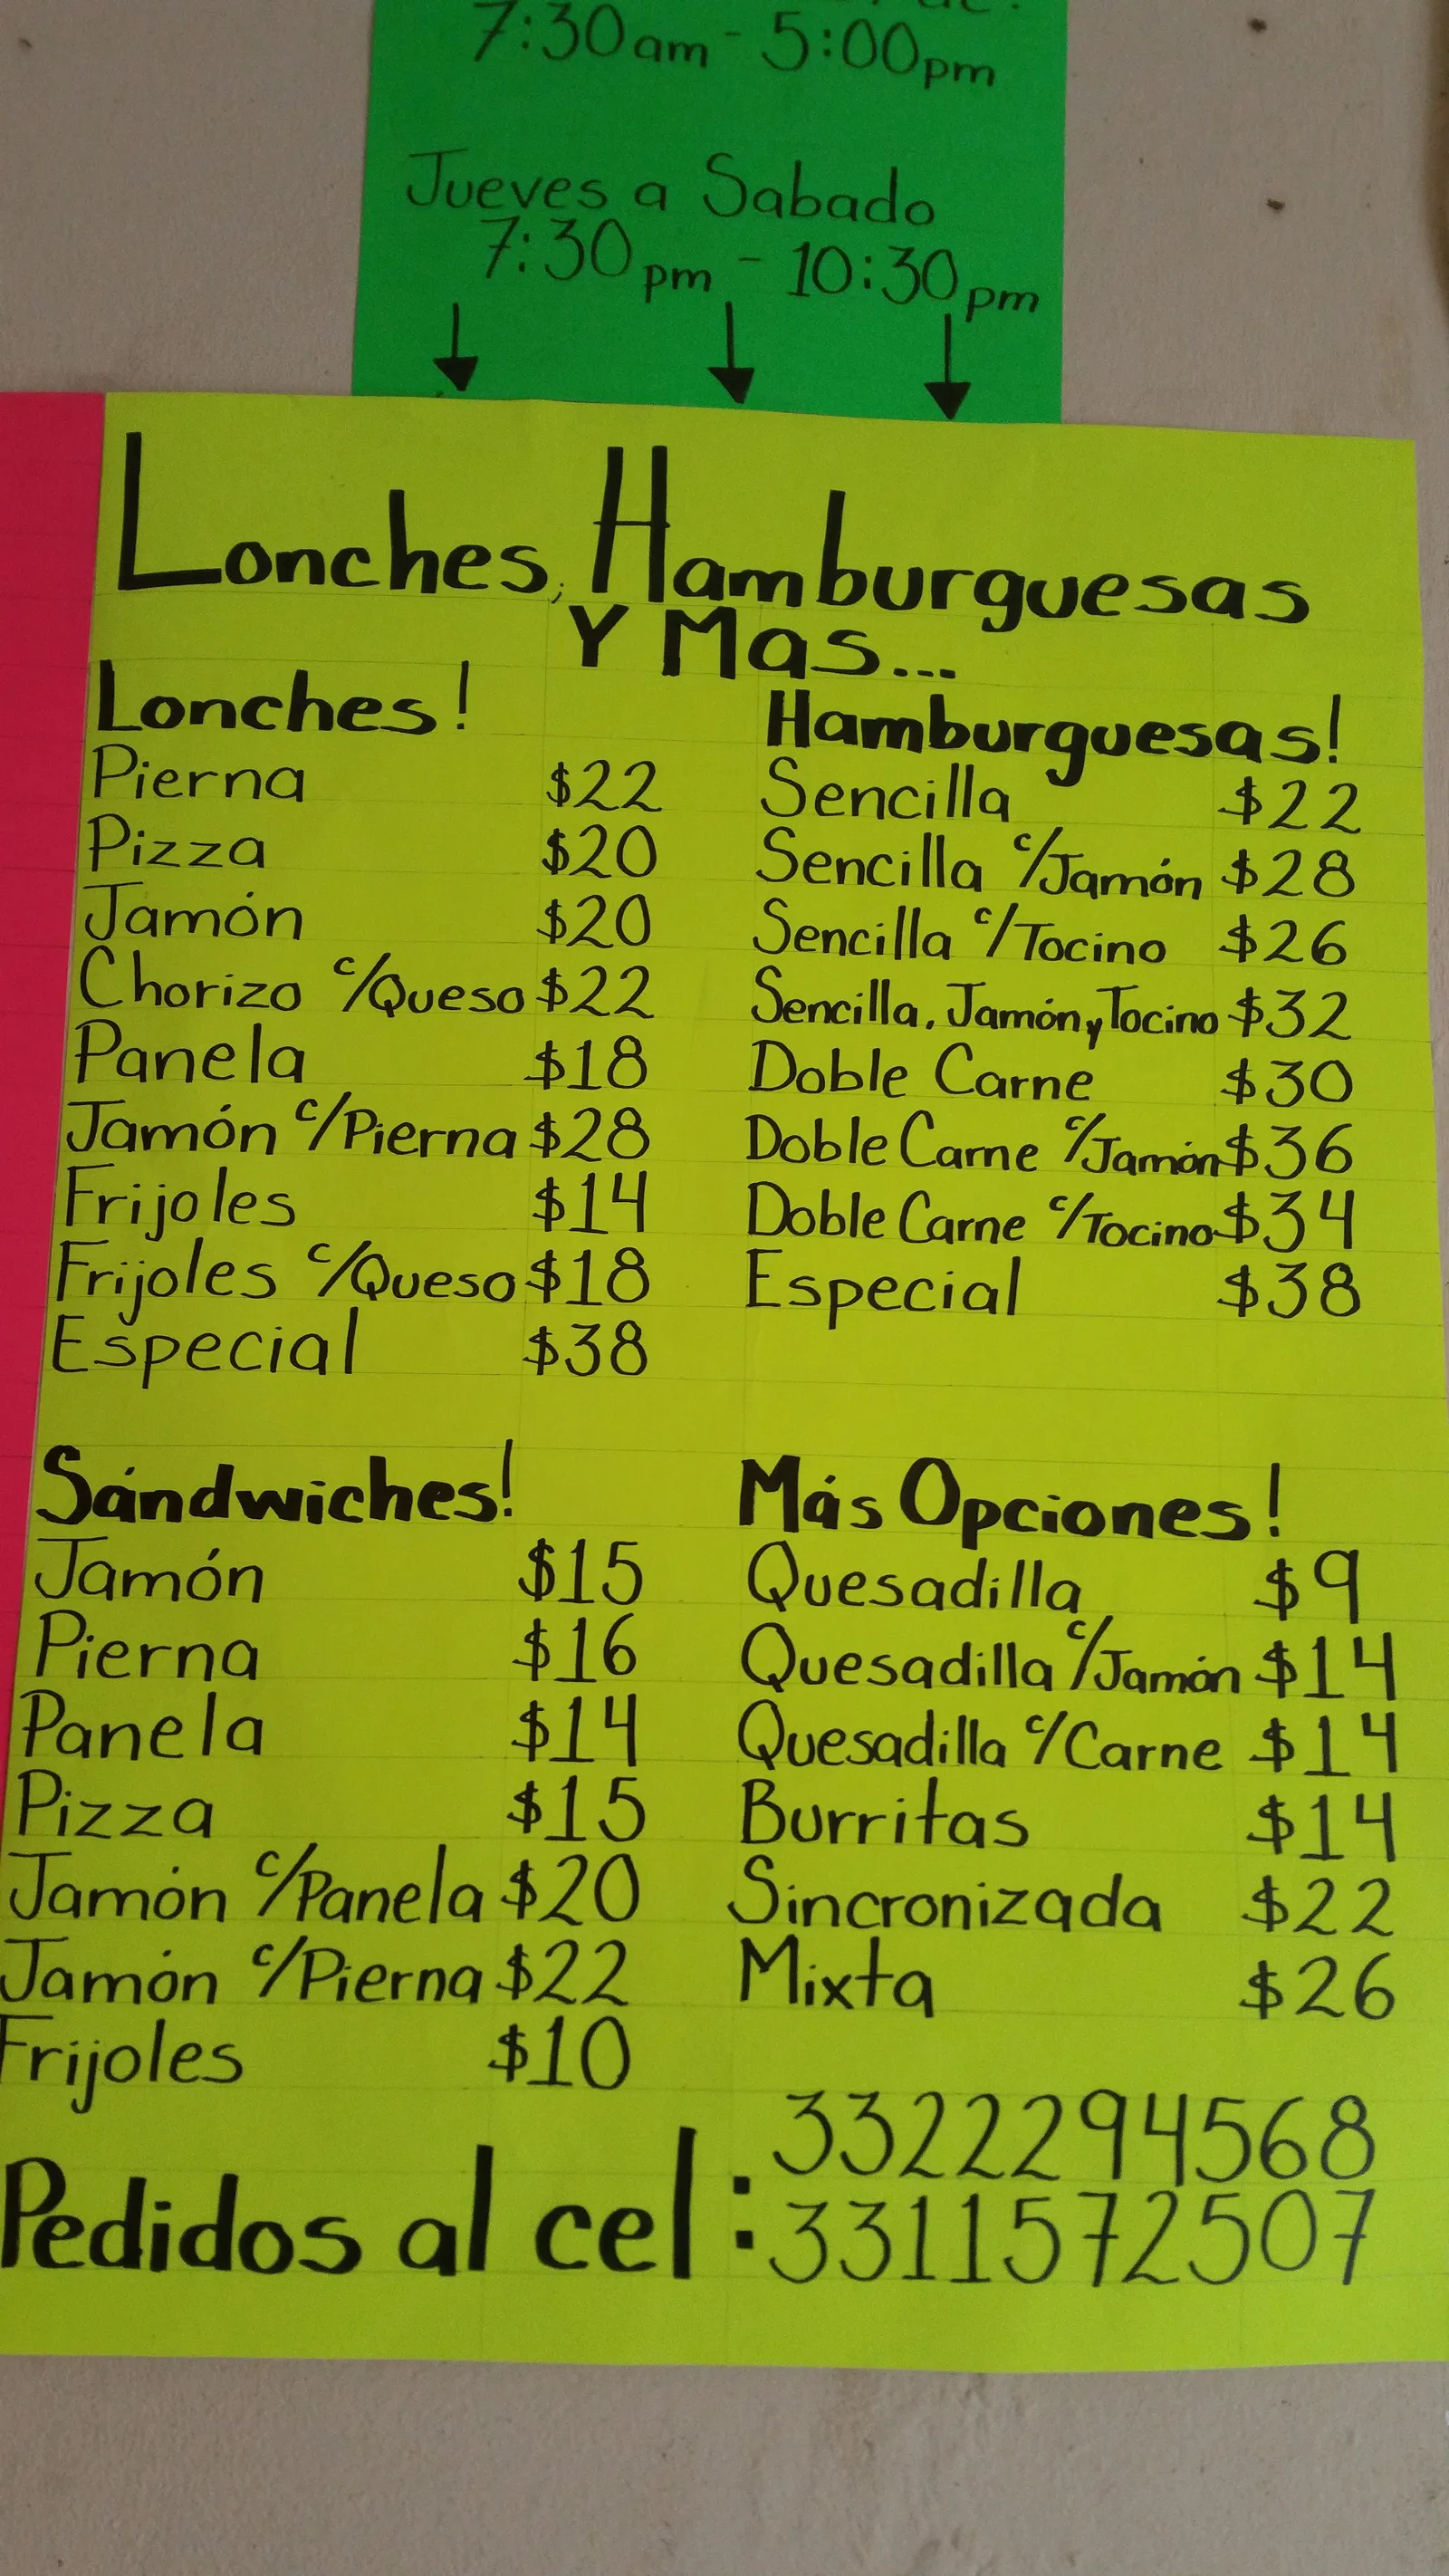 7:30am - 5:00pm
Jueves a Sabado
7:30pm - 10:30pm
Lonches, Hamburguesas
Y Mas...
Lonches!
Pierna $22
Pizza $20
Jamón $20
Chorizo c/Queso $22
Panela $18
Jamón c/Pierna $28
Frijoles $14
Frijoles c/Queso $18
Especial $38
Hamburguesas!
Sencilla $22
Sencilla c/Jamón $28
Sencilla c/Tocino $26
Sencilla, Jamón y Tocino $32
Doble Carne $30
Doble Carne c/Jamón $36
Doble Carne c/Tocino $34
Especial $38
Sándwiches!
Jamón $15
Pierna $16
Panela $14
Pizza $15
Jamón c/Panela $20
Jamón c/Pierna $22
Frijoles $10
Más Opciones!
Quesadilla $9
Quesadilla c/Jamón $14
Quesadilla c/Carne $14
Burritas $14
Sincronizada $22
Mixta $26
Pedidos al cel: 3322294568
3311572507